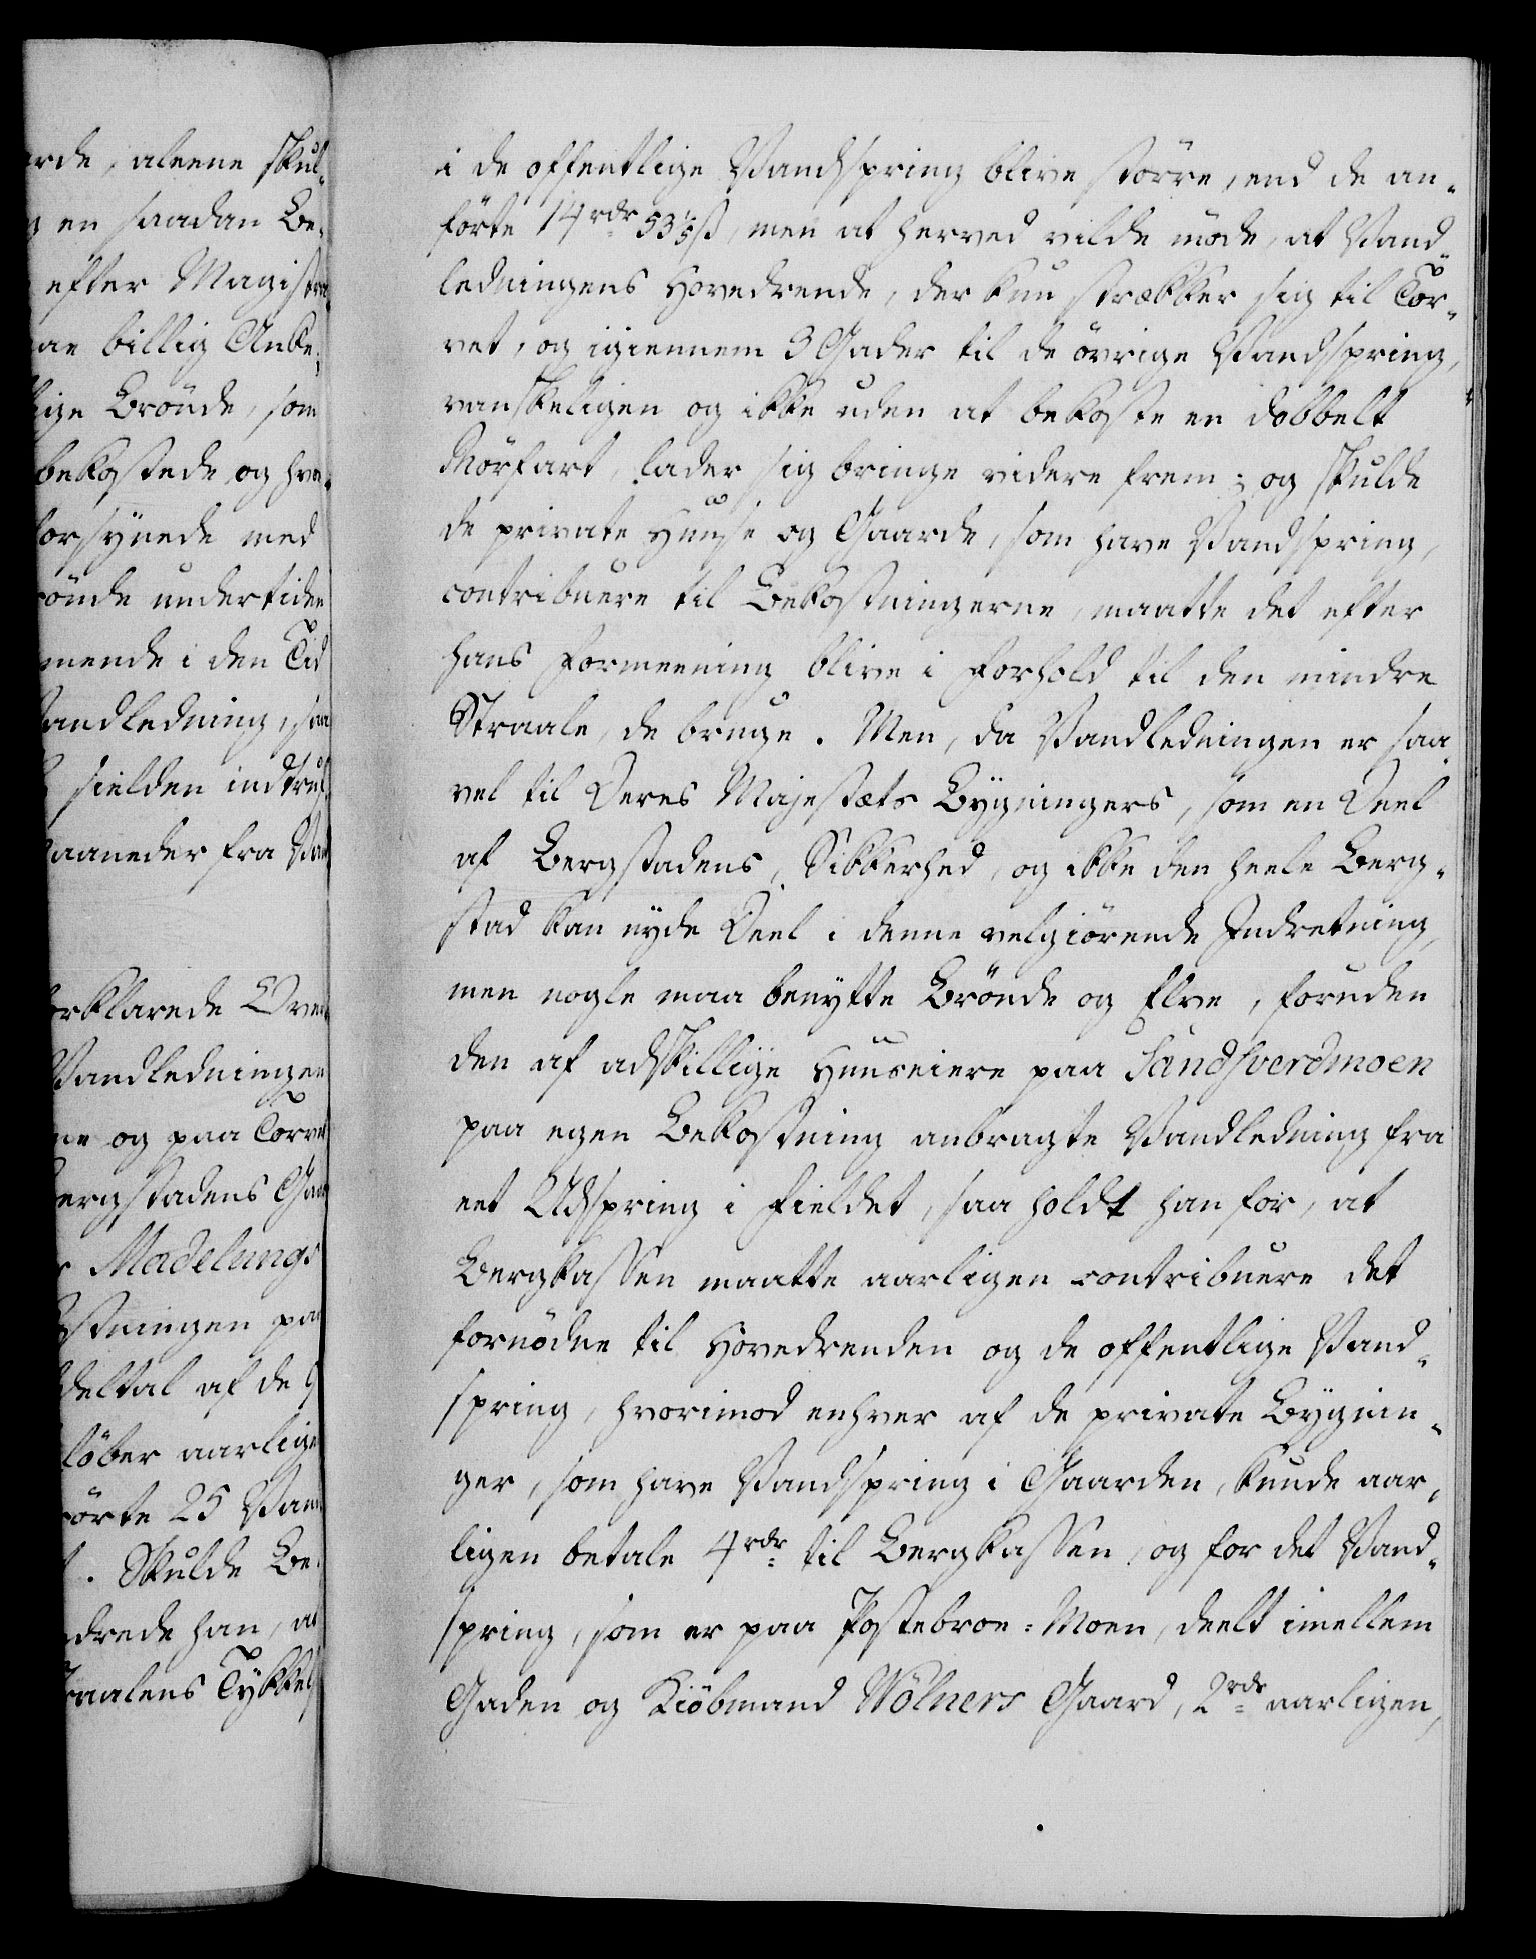 rde, aleene skul-
en saadan Be-
efter Magistra
billig Anke-
ige Brönde, som
bekostede og hva-
forsynede med
rönde undertiden
mende i den Tid
andledning, saa
sielden indtruf-
aaneder fra Van
orklarede Over
Vandledningen
ne og paa Torvet
ergstadens Gaar
Madelungs
ostningen paa
deltal af de
löber aarlige
förte 25 Van
. Skulde Be-
drede han, at
raalens Tykkels
i de offentlige Vandspring blive större, end de an-
förte 14 rdr 53 1/5 ß, men at herved vilde möde, at Vand-
ledningens Hovedrende, der kun strækker sig til Tor-
vet, og igiennem 3 Gader til de övrige Vandspring,
vanskeligen og ikke uden at bekoste en dobbelt
Rörfart, lader sig bringe videre frem; og skulde
de private Huuse og Gaarde, som have Vandspring,
contribuere til Bekostningerne, maatte det efter
hans Formeening blive i Forhold til den mindre
Straale, de bruge. Men, da Vandledningen er saa
vel til Deres Majestæts Bygningers, som en Deel
af Bergstadens, Sikkerhed, og ikke den heele Berg-
stad kan nyde Deel i denne velgiörende Indretning,
men nogle maa benytte Brönde og Elve, foruden
den af adskillige Huuseiere paa Sandsverdmoen
paa egen Bekostning anbragte Vandledning fra
eet Udspring i Fieldet, saa holdt han for, at
Bergkassen maatte aarligen contribuere det
fornödne til Hovedrenden og de offentlige Vand-
spring, hvorimod enhver af de private Bygnin-
ger, som have Vandspring i Gaarden, kunde aar-
ligen betale 4 rdr til Bergkassen, og for det Vand-
spring, som er paa Postebroe-Moen, deelt imellem
Gaden og Kiöbmand Wölners Gaard, 2 rdr aarligen,